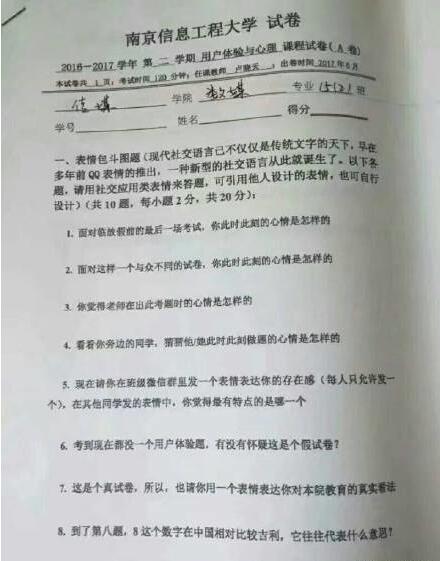 南京信息工程大学 试卷
2016－2017 学年 第 二 学期 用户体验与心理 课程试卷( A 卷)
本试卷共 1 页；考试时间 120 分钟；任课教师 卢晓天 ；出卷时间 2017 年 6 月
传媒 学院 数媒 专业 15(2) 班
学号 姓名 得分
一、表情包斗图题（现代社交语言已不仅仅是传统文字的天下，早在
多年前 QQ 表情的推出，一种新型的社交语言从此就诞生了。以下各
题，请用社交应用类表情来答题，可引用他人设计的表情，也可自行
设计）（共 10 题，每小题 2 分，共 20 分）：
1. 面对临放假前的最后一场考试，你此时此刻的心情是怎样的
2. 面对这样一个与众不同的试卷，你此时此刻的心情是怎样的
3. 你觉得老师在出此考题时的心情是怎样的
4. 看看你旁边的同学，猜猜他/她此时此刻做题的心情是怎样的
5. 现在请你在班级微信群里发一个表情表达你的存在感（每人只允许发一
个），在其他同学发的表情中，你觉得最有特点的是哪一个
6. 考到现在都没一个用户体验题，有没有怀疑这是个假试卷？
7. 这是个真试卷，所以，也请你用一个表情表达你对本院教育的真实看法
8. 到了第八题，8 这个数字在中国相对比较吉利，它往往代表什么意思？